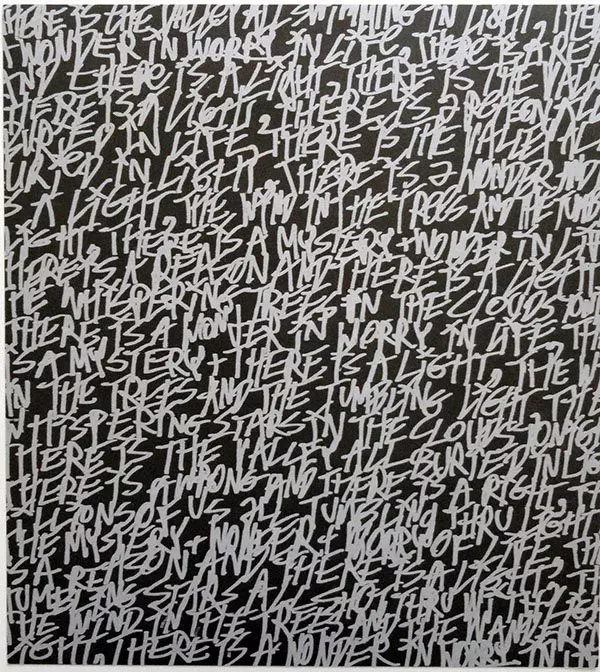 HERE IS THE VALLEY ALL SWIMMING IN LIGHT, THERE
WONDER IN WORRY IN LIFE, THERE IS A RE
AND THERE IS A LIGHT, THERE IS THE VALLE
THERE IS A LIGHT THERE IS A REASON AL
BURIED IN LIFE, THERE IS THE VALLE AL
BURIED IN LIGHT, THERE IS A WONDER AND
S A LIGHT, THE WIND IN THE TREES AND THE TUMB
LIGHT, THERE IS A MYSTERY + WONDER IN LIF
THERE IS A REASON AND THERE IS A LIGHT
HE WHISPERING TREES IN THE CLOUDS TON
THERE IS A WONDER IN WORRY IN LIFE TH
IS A MYSTERY + THERE IS A LIGHT, THE W
IN THE TREES AND THE TUMBLING LIGHT, TH
WHISPERING STARS IN THE CLOUDS TONIG
THERE IS THE VALLEY ALL BURIED IN LIG
THERE IS A WRONG AND THERE IS A RIGHT, T
ILLIONS OF US ALL TUMBLING THRU LIGHT
THE MYSTERY + WONDER + WORRY OF LIFE, TH
IS A REASON AND THERE IS A LIGHT, TH
TUMBLING STARS ALL SHOT THRU WITH LIG
THE WIND IN THE TREES AND THE WANDERING
LIGHT, THERE IS A WONDER IN WORRY IN